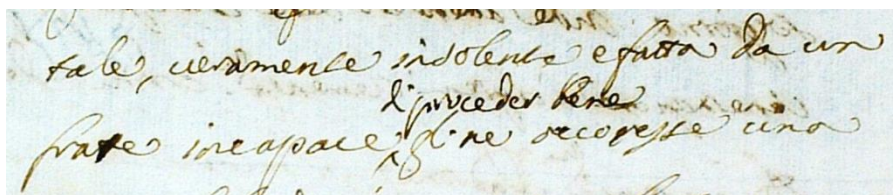 tale, veramente insolente e fatta da un
di proceder bene
frate incapace, gli ne occoresse una